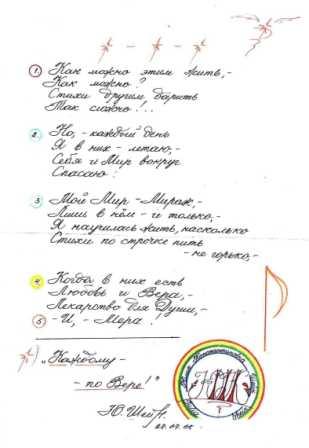 * - * - *
1. Как можно этим жить, -
Как можно?
Стихи другим дарить
Так сложно!..
2. Но, - каждый день
Я в них - летаю, -
Себя и Мир вокруг
Спасаю!
3. Мой Мир - Мираж, -
Лишь в нём - и только, -
Я научилась жить, насколько
Стихи по строчке пить
- не горько, -
4. Когда в них есть
Любовь и Вера, -
Лекарство для Души, -
5. - И, - Мера!
*) "Каждому -
- по Вере!"
Ю. Шейн.